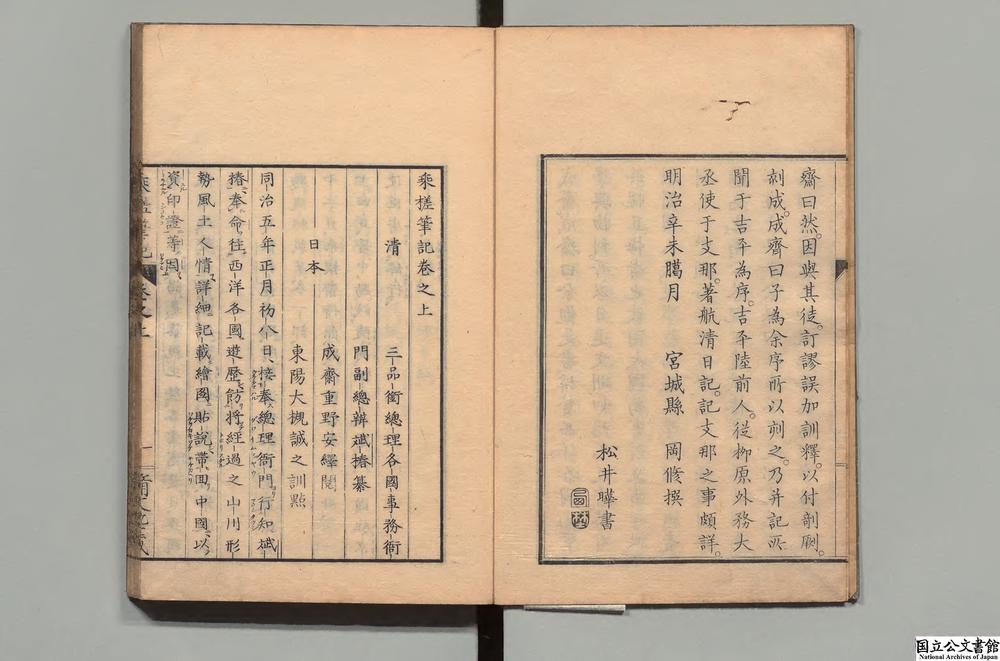 齋曰然。因與其徒。訂謬誤加訓釋。以付剞劂。
刻成。成齋曰子為余序所以刻之。乃幷記所
聞于吉平為序。吉平陸前人。從柳原外務大
丞使于支那。著航清日記。記支那之事頗詳。
明治辛未臈月　宮城縣　岡修撰
松井曄書
乘槎筆記卷之上
清　三品銜總理各國事務衙
門副總辨斌椿纂
日本　成齋重野安繹閲
東陽大槻誠之訓點
同治五年正月初六日、接奉總理衙門行知、斌
椿奉命往西洋各國遊歷、飭將經過之山川形
勢風土人情詳細記載、繪圖貼說、帶回中國、以
資印證等因、
乘槎筆記 卷之上 一
国立公文書館
National Archives of Japan